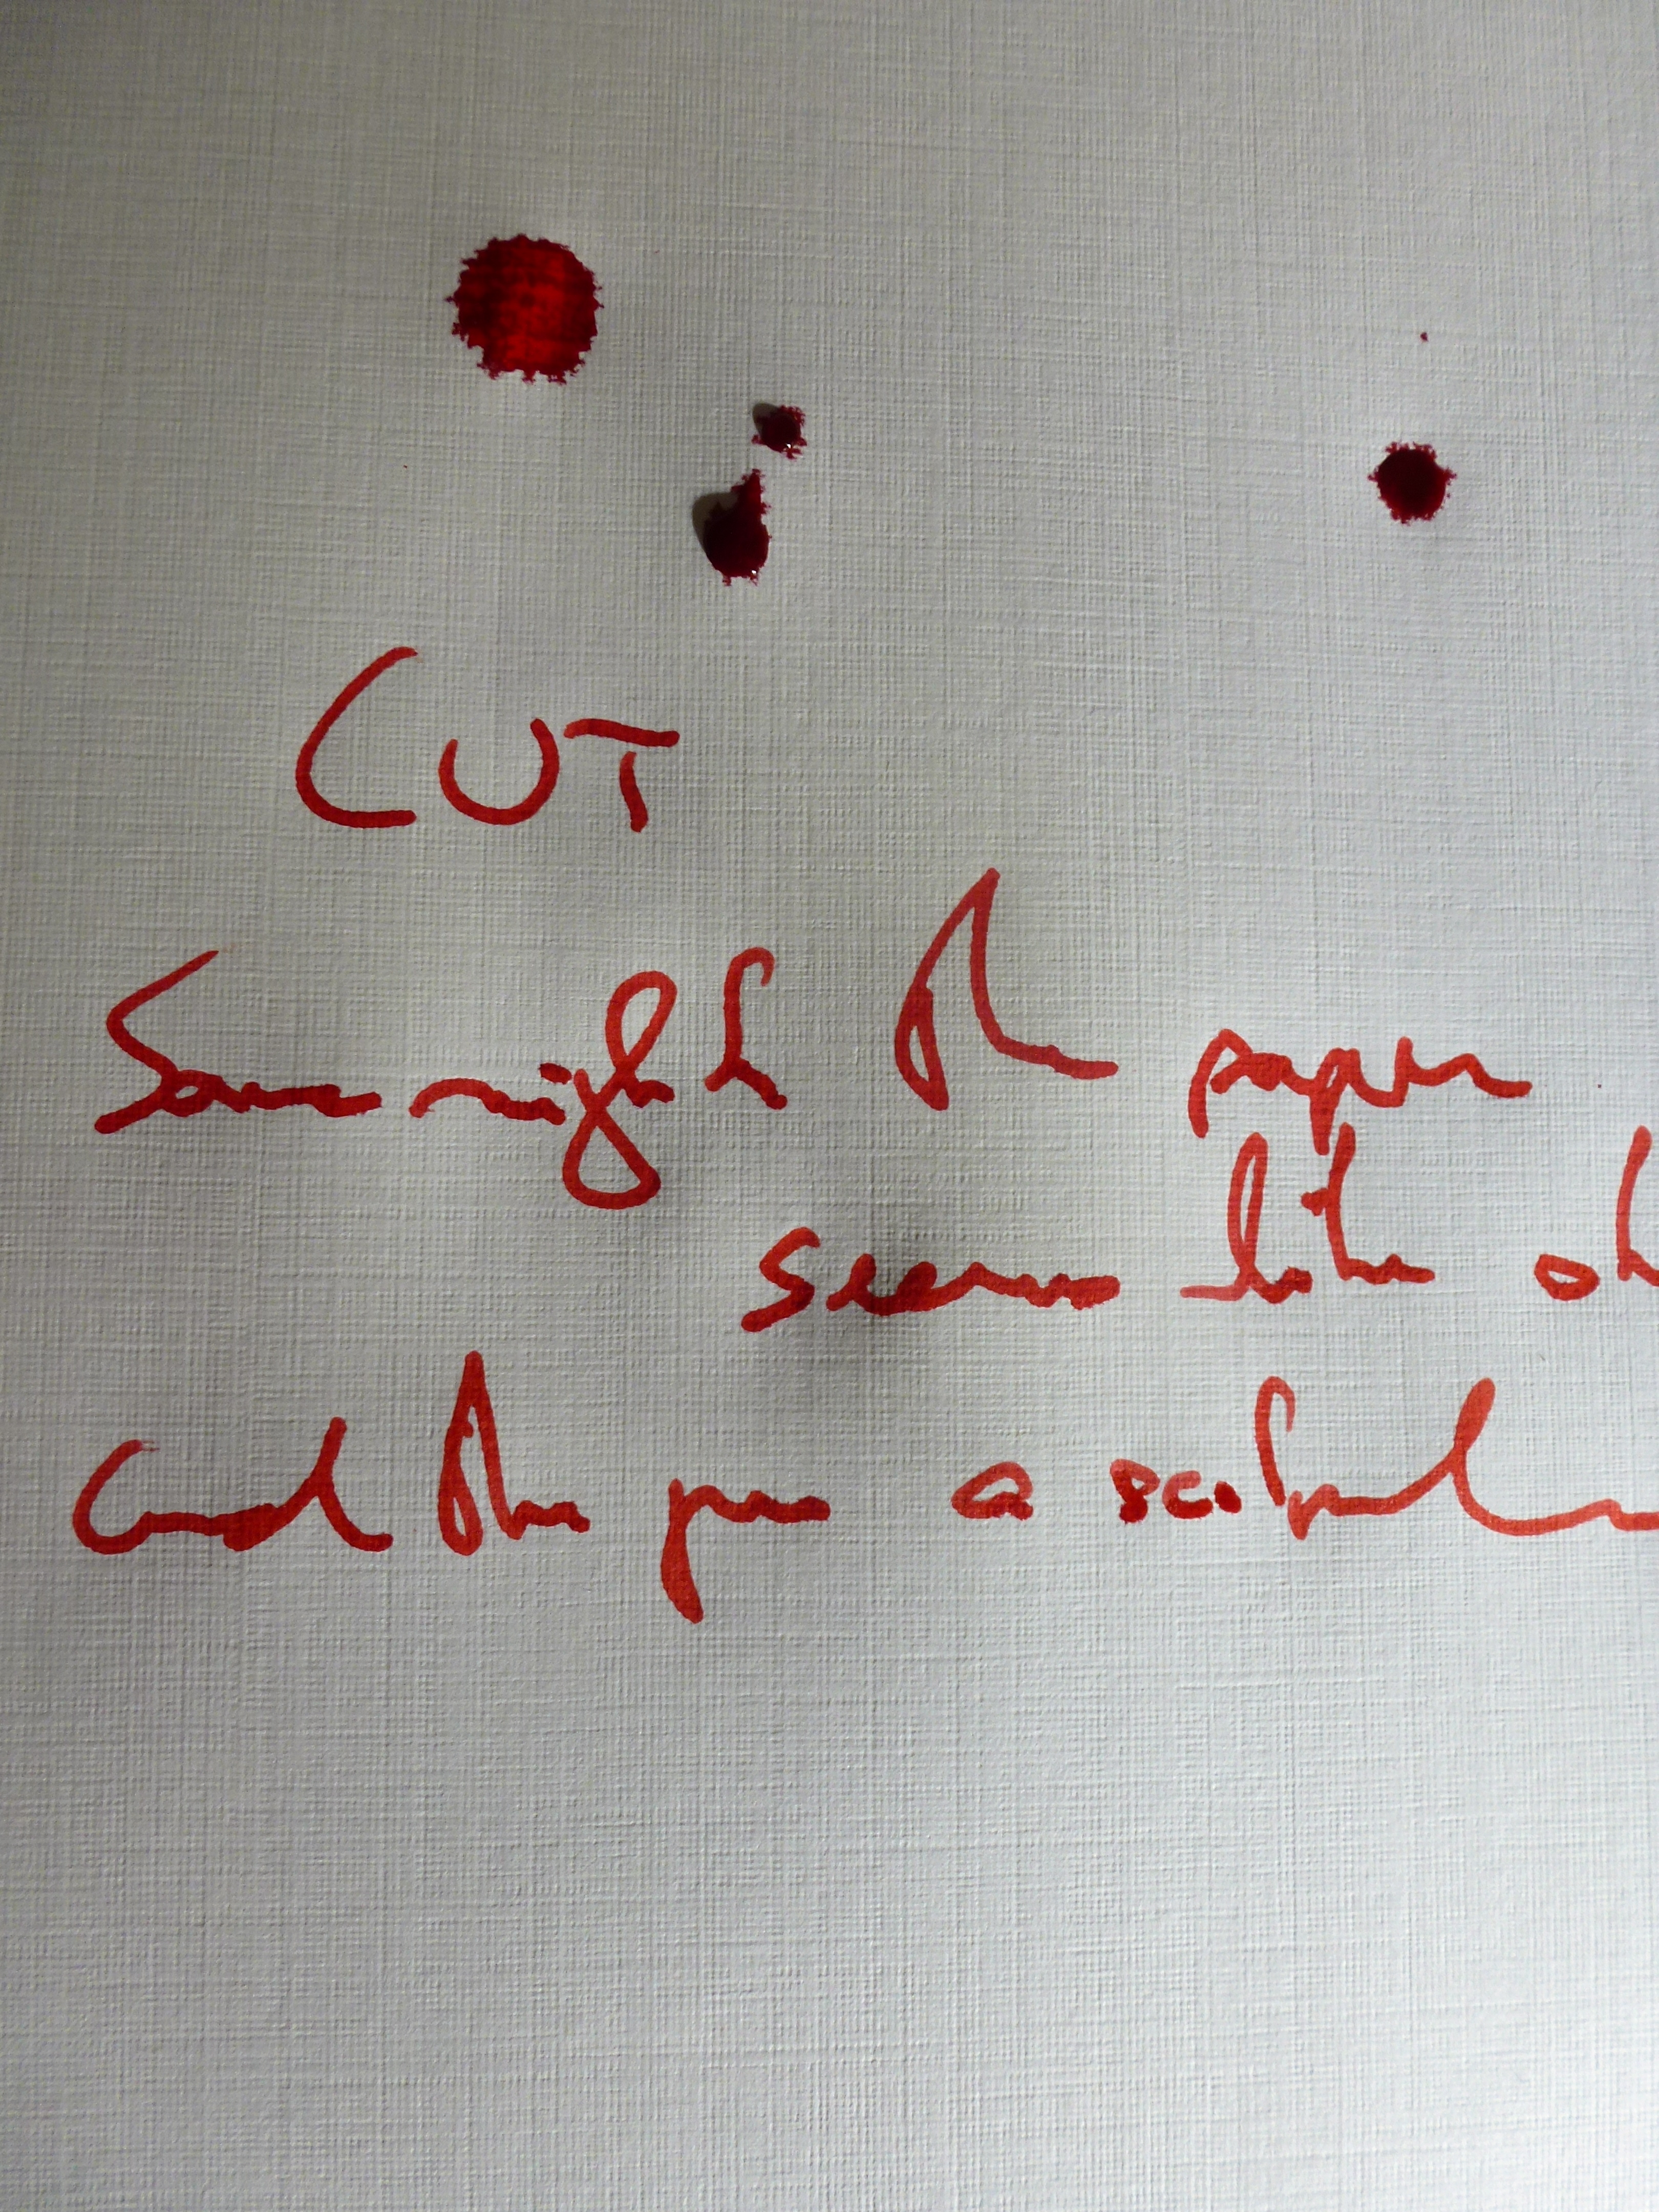 CUT
Some nights the paper
seems like sk
and the pen a scalpel